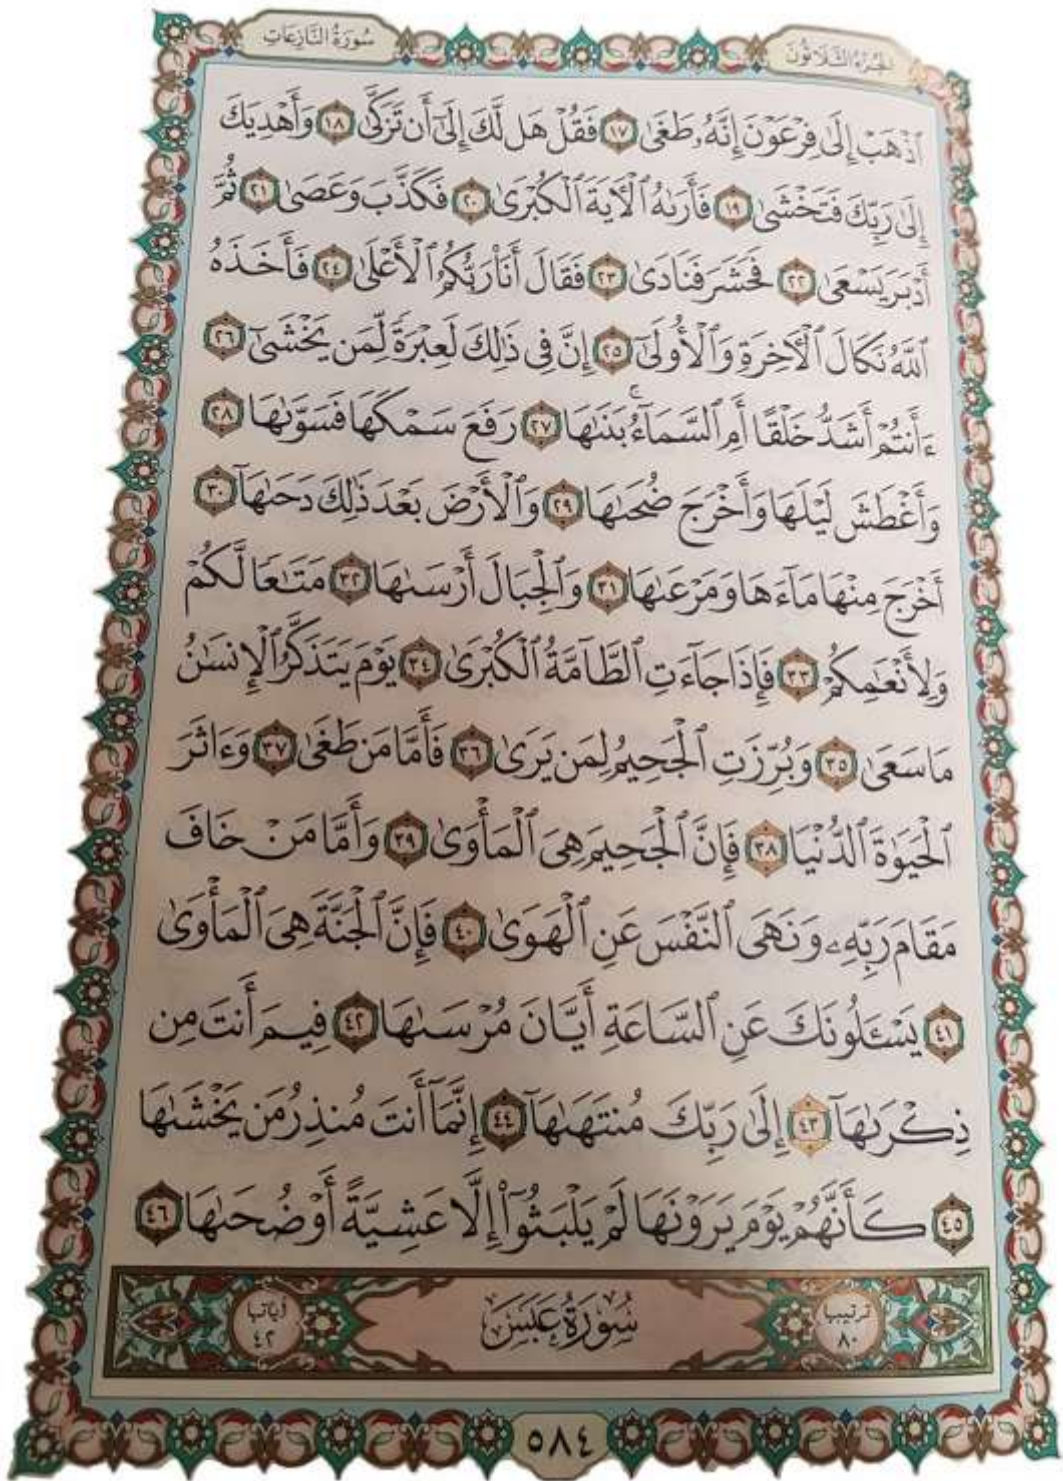 سُورَةُ النَّازِعَاتِ
الجُزْءُ الثَّلَاثُونَ
ٱذْهَبْ إِلَىٰ فِرْعَوْنَ إِنَّهُۥ طَغَىٰ ١٧ فَقُلْ هَل لَّكَ إِلَىٰٓ أَن تَزَكَّىٰ ١٨ وَأَهْدِيَكَ
إِلَىٰ رَبِّكَ فَتَخْشَىٰ ١٩ فَأَرَىٰهُ ٱلْءَايَةَ ٱلْكُبْرَىٰ ٢٠ فَكَذَّبَ وَعَصَىٰ ٢١ ثُمَّ
أَدْبَرَ يَسْعَىٰ ٢٢ فَحَشَرَ فَنَادَىٰ ٢٣ فَقَالَ أَنَا۠ رَبُّكُمُ ٱلْأَعْلَىٰ ٢٤ فَأَخَذَهُ
ٱللَّهُ نَكَالَ ٱلْءَاخِرَةِ وَٱلْأُولَىٰٓ ٢٥ إِنَّ فِى ذَٰلِكَ لَعِبْرَةً لِّمَن يَخْشَىٰٓ ٢٦
ءَأَنتُمْ أَشَدُّ خَلْقًا أَمِ ٱلسَّمَآءُ ۚ بَنَىٰهَا ٢٧ رَفَعَ سَمْكَهَا فَسَوَّىٰهَا ٢٨
وَأَغْطَشَ لَيْلَهَا وَأَخْرَجَ ضُحَىٰهَا ٢٩ وَٱلْأَرْضَ بَعْدَ ذَٰلِكَ دَحَىٰهَآ ٣٠
أَخْرَجَ مِنْهَا مَآءَهَا وَمَرْعَىٰهَا ٣١ وَٱلْجِبَالَ أَرْسَىٰهَا ٣٢ مَتَٰعًا لَّكُمْ
وَلِأَنْعَٰمِكُمْ ٣٣ فَإِذَا جَآءَتِ ٱلطَّآمَّةُ ٱلْكُبْرَىٰ ٣٤ يَوْمَ يَتَذَكَّرُ ٱلْإِنسَٰنُ
مَا سَعَىٰ ٣٥ وَبُرِّزَتِ ٱلْجَحِيمُ لِمَن يَرَىٰ ٣٦ فَأَمَّا مَن طَغَىٰ ٣٧ وَءَاثَرَ
ٱلْحَيَوٰةَ ٱلدُّنْيَا ٣٨ فَإِنَّ ٱلْجَحِيمَ هِىَ ٱلْمَأْوَىٰ ٣٩ وَأَمَّا مَنْ خَافَ
مَقَامَ رَبِّهِۦ وَنَهَى ٱلنَّفْسَ عَنِ ٱلْهَوَىٰ ٤٠ فَإِنَّ ٱلْجَنَّةَ هِىَ ٱلْمَأْوَىٰ
٤١ يَسْـَٔلُونَكَ عَنِ ٱلسَّاعَةِ أَيَّانَ مُرْسَىٰهَا ٤٢ فِيمَ أَنتَ مِن
ذِكْرَىٰهَآ ٤٣ إِلَىٰ رَبِّكَ مُنتَهَىٰهَآ ٤٤ إِنَّمَآ أَنتَ مُنذِرُ مَن يَخْشَىٰهَا
٤٥ كَأَنَّهُمْ يَوْمَ يَرَوْنَهَا لَمْ يَلْبَثُوٓا۟ إِلَّا عَشِيَّةً أَوْ ضُحَىٰهَا ٤٦
ترتيبها ٨٠
سُورَةُ عَبَسَ
آياتها ٤٢
٥٨٤